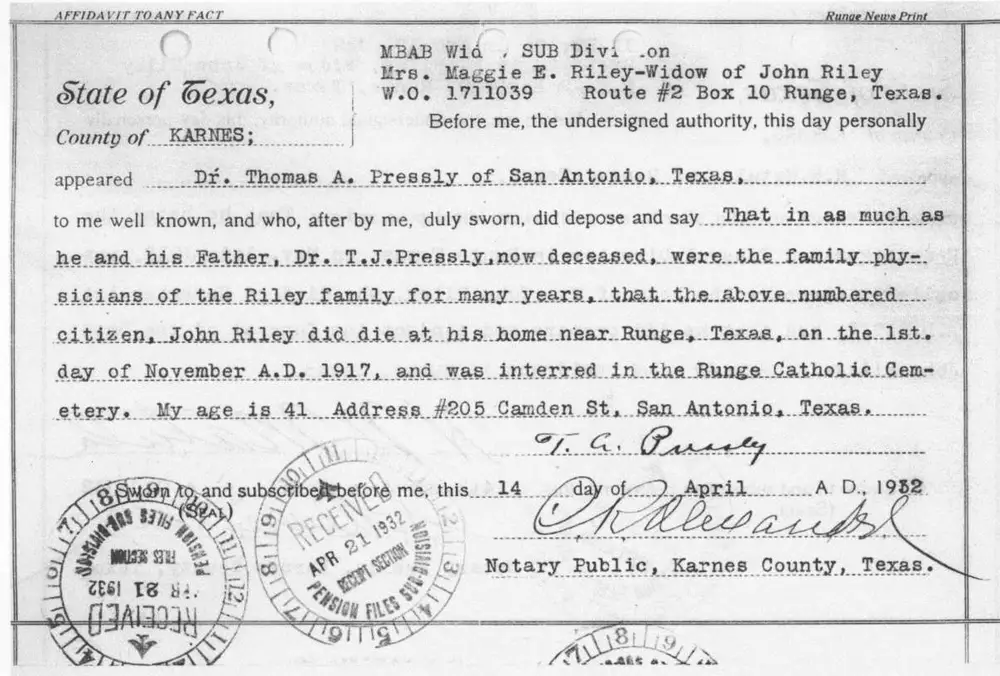 AFFIDAVIT TO ANY FACT
Runge News Print
MBAB Wid . SUB Divi on
Mrs. Maggie E. Riley-Widow of John Riley
W.O. 1711039 Route #2 Box 10 Runge, Texas.
State of Texas,
County of KARNES;
Before me, the undersigned authority, this day personally
appeared Dr. Thomas A. Pressly of San Antonio, Texas,
to me well known, and who, after by me, duly sworn, did depose and say That in as much as
he and his Father, Dr. T.J.Pressly,now deceased, were the family phy-
sicians of the Riley family for many years, that the above numbered
citizen, John Riley did die at his home near Runge, Texas, on the 1st.
day of November A.D. 1917, and was interred in the Runge Catholic Cem-
etery. My age is 41 Address #205 Camden St, San Antonio, Texas.
T. A. Pressly
Sworn to and subscribed before me, this 14 day of April A D., 1932
(SEAL)
Notary Public, Karnes County, Texas.
RECEIVED
APR 21 1932
RECEIPT SECTION
PENSION FILES SUB-DIVISION
10 11 12 2 3 4 5 6 7 8 9
PENSION FILES SUB-DIVISION
FILES SECTION
APR 21 1932
RECEIVED
11 12 5 6 7 8 9
7 8 9